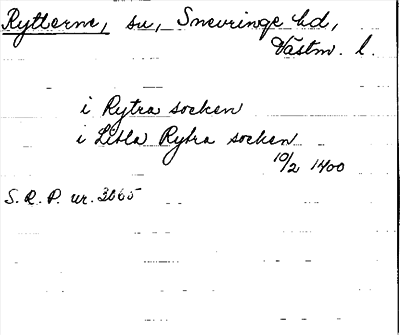 Rytterne, sn, Snevringe hd,
Västm. l.
i Rytra socken
i Litla Rytra socken
10/2 1400
S.R.P. nr. 3065